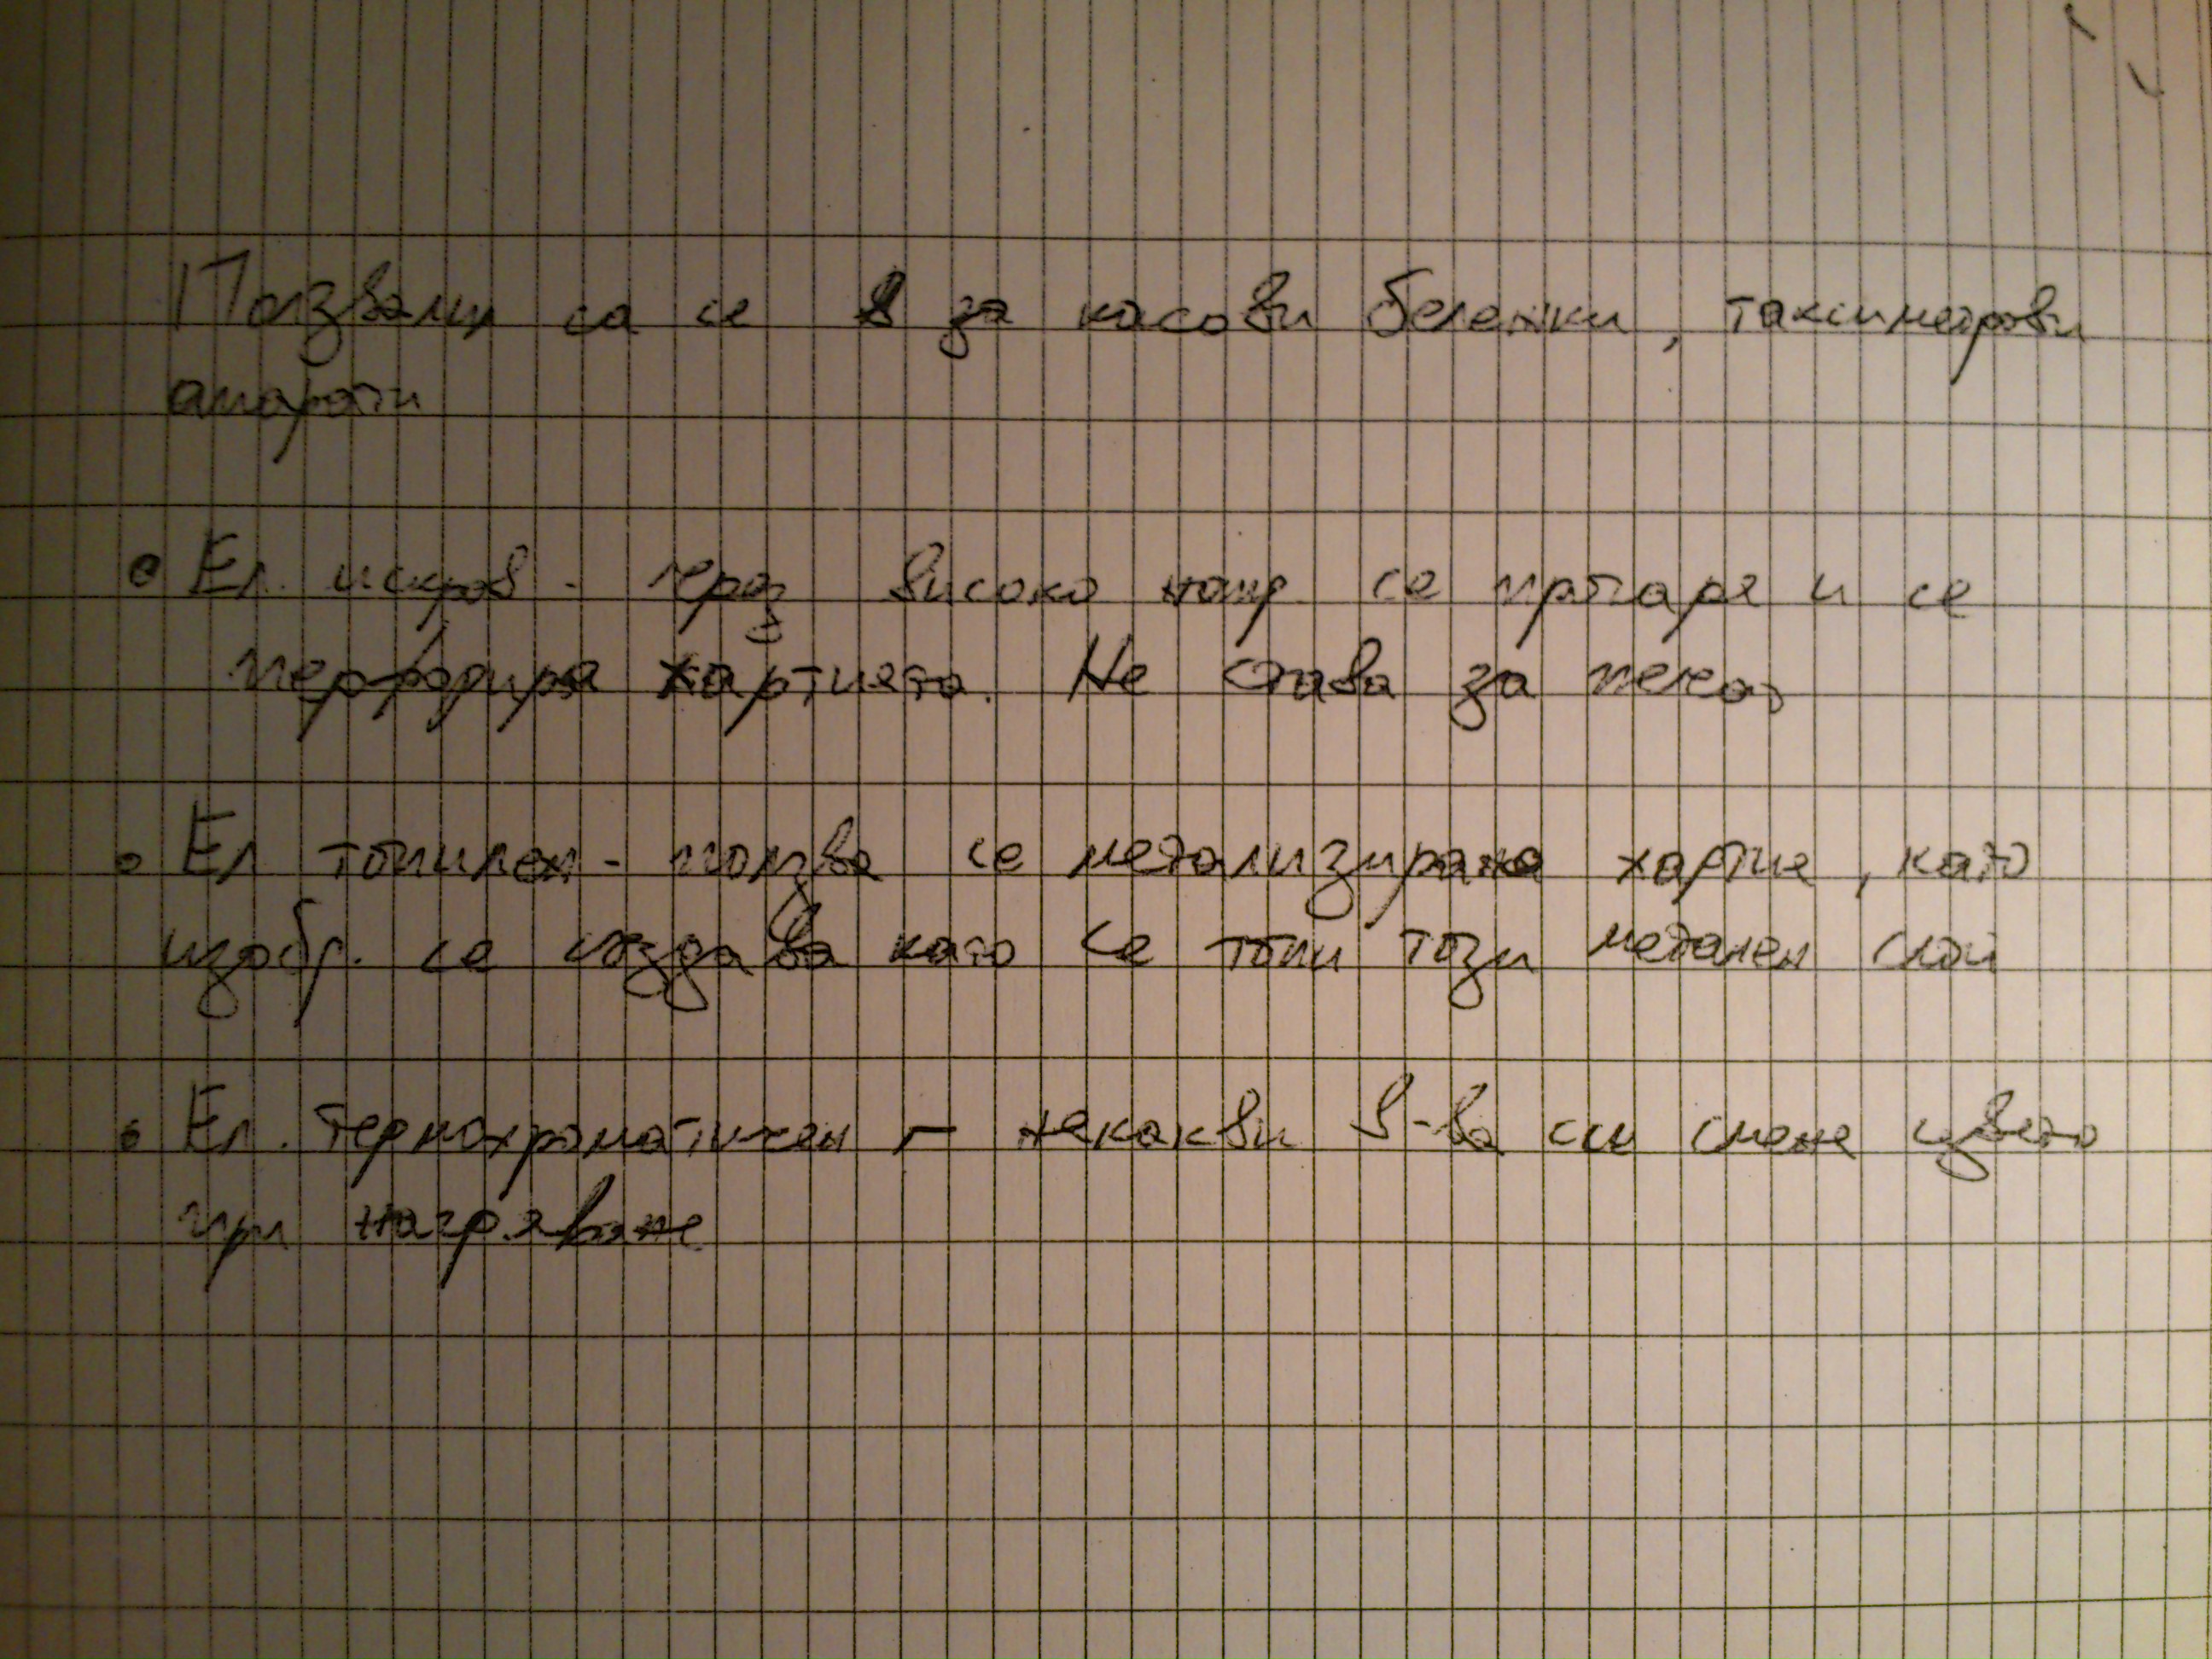 Ползвали са се за касови бележки, таксиметрови
апарати
• Ел. искров - чрез високо напр. се прогаря и се
перфорира хартията. Не става за печат
• Ел топилен - ползва се метализирана хартия, като
изобр. се създава като се топи този метален слой
• Ел. термохроматичен - някакви в-ва си сменя цвета
при нагряване